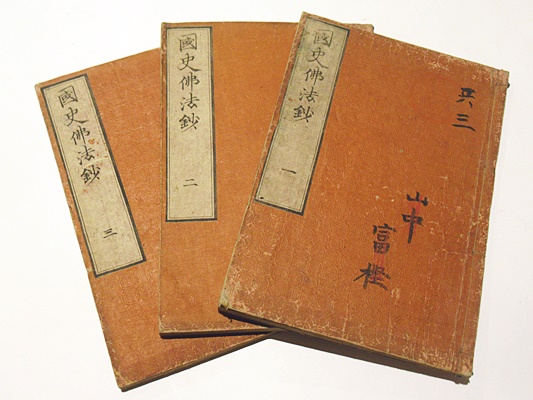 國史佛法鈔
三
國史佛法鈔
二
國史佛法鈔
一
共三
山中
富樫